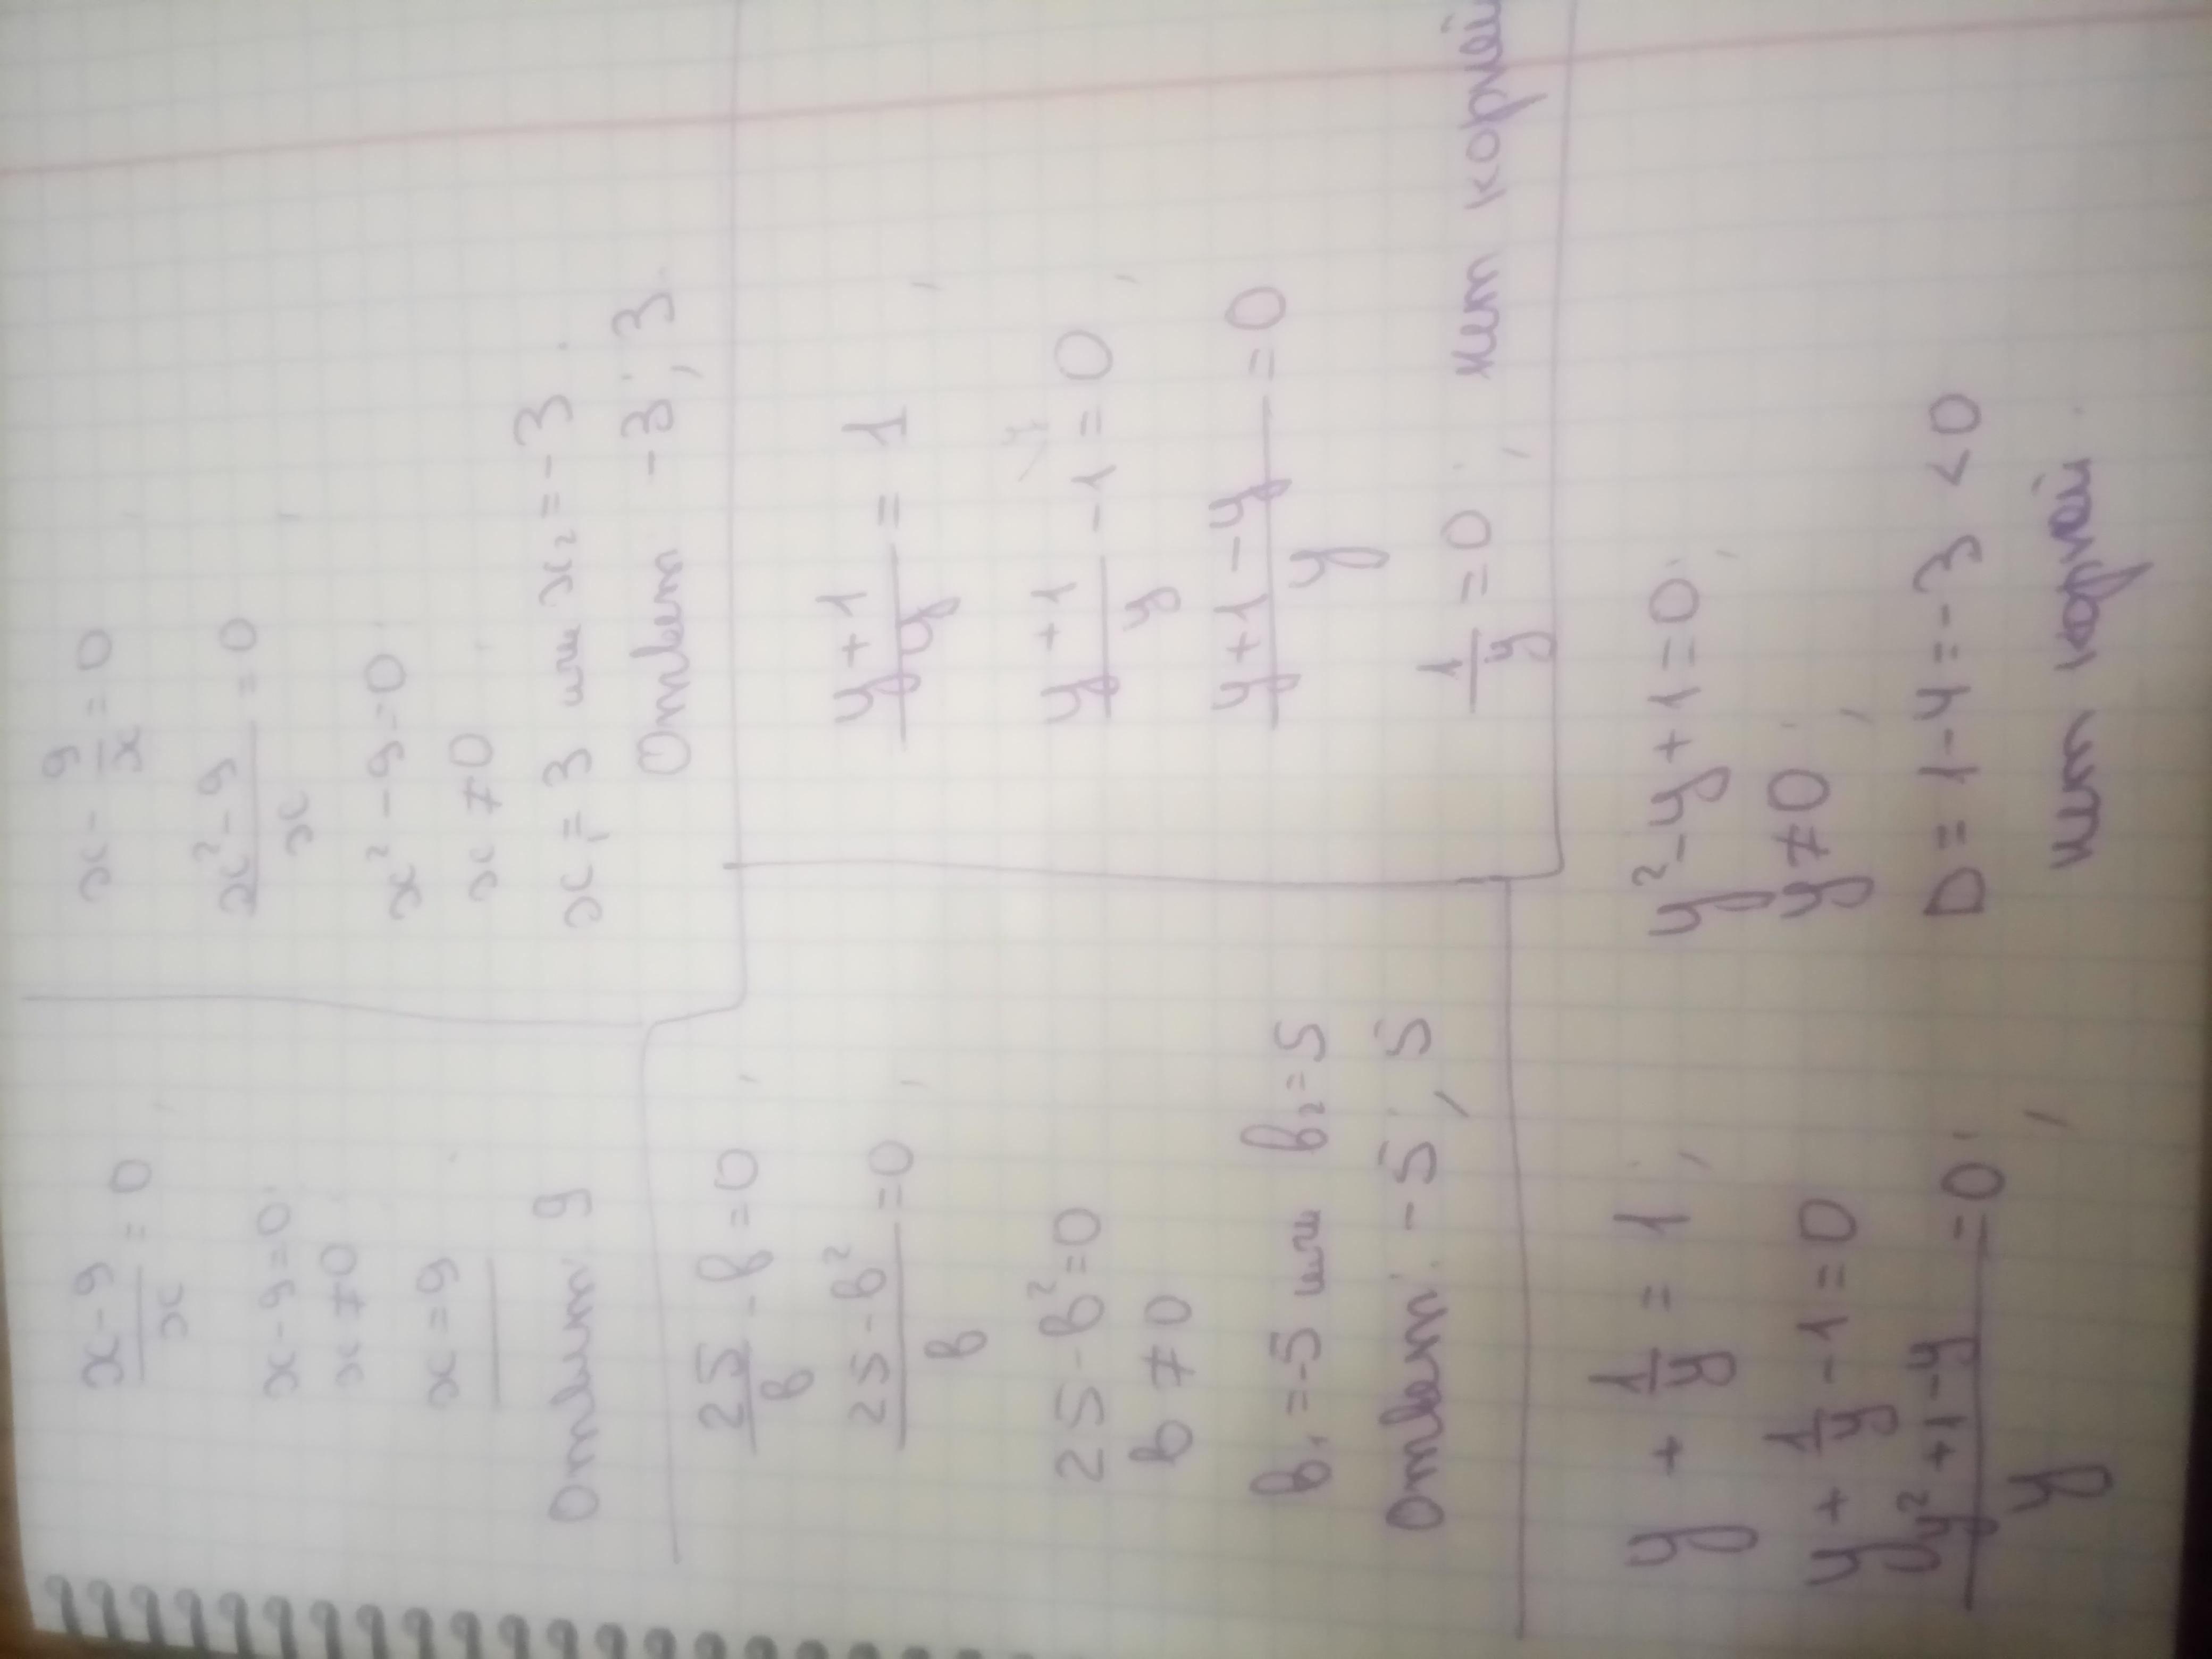 x-9/x = 0;
x-9=0;
x≠0;
x=9.
Ответ: 9
x - 9/x = 0;
x²-9/x = 0;
x²-9=0;
x≠0.
x₁=3 или x₂=-3.
Ответ: -3; 3.
25/в - в = 0;
25-в²/в = 0;
25-в²=0
в≠0
в₁=-5 или в₂=5
Ответ: -5; 5
y+1/y = 1;
y+1/y - 1 = 0;
y+1-y/y = 0
1/y = 0; нет корней
y + 1/y = 1;
y + 1/y - 1 = 0
y²+1-y/y = 0;
y²-y+1=0;
y≠0;
D = 1-4=-3 <0
нет корней.